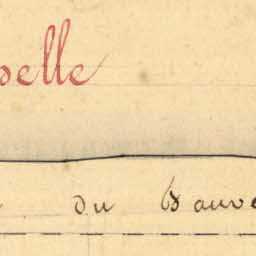 selle
du Bauve